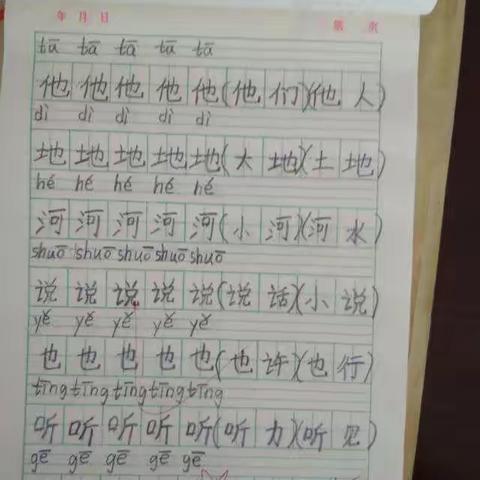 年 月 日 第 页
tā tā tā tā tā
他 他 他 他 他(他 们)(他 人)
dì dì dì dì dì
地 地 地 地 地(大 地)(土 地)
hé hé hé hé hé
河 河 河 河 河(小 河)(河 水)
shuō shuō shuō shuō shuō
说 说 说 说 说(说 话)(小 说)
yě yě yě yě yě
也 也 也 也 也(也 许)(也 行)
tīng tīng tīng tīng tīng
听 听 听 听 听(听 力)(听 见)
gē gē gē gē gē